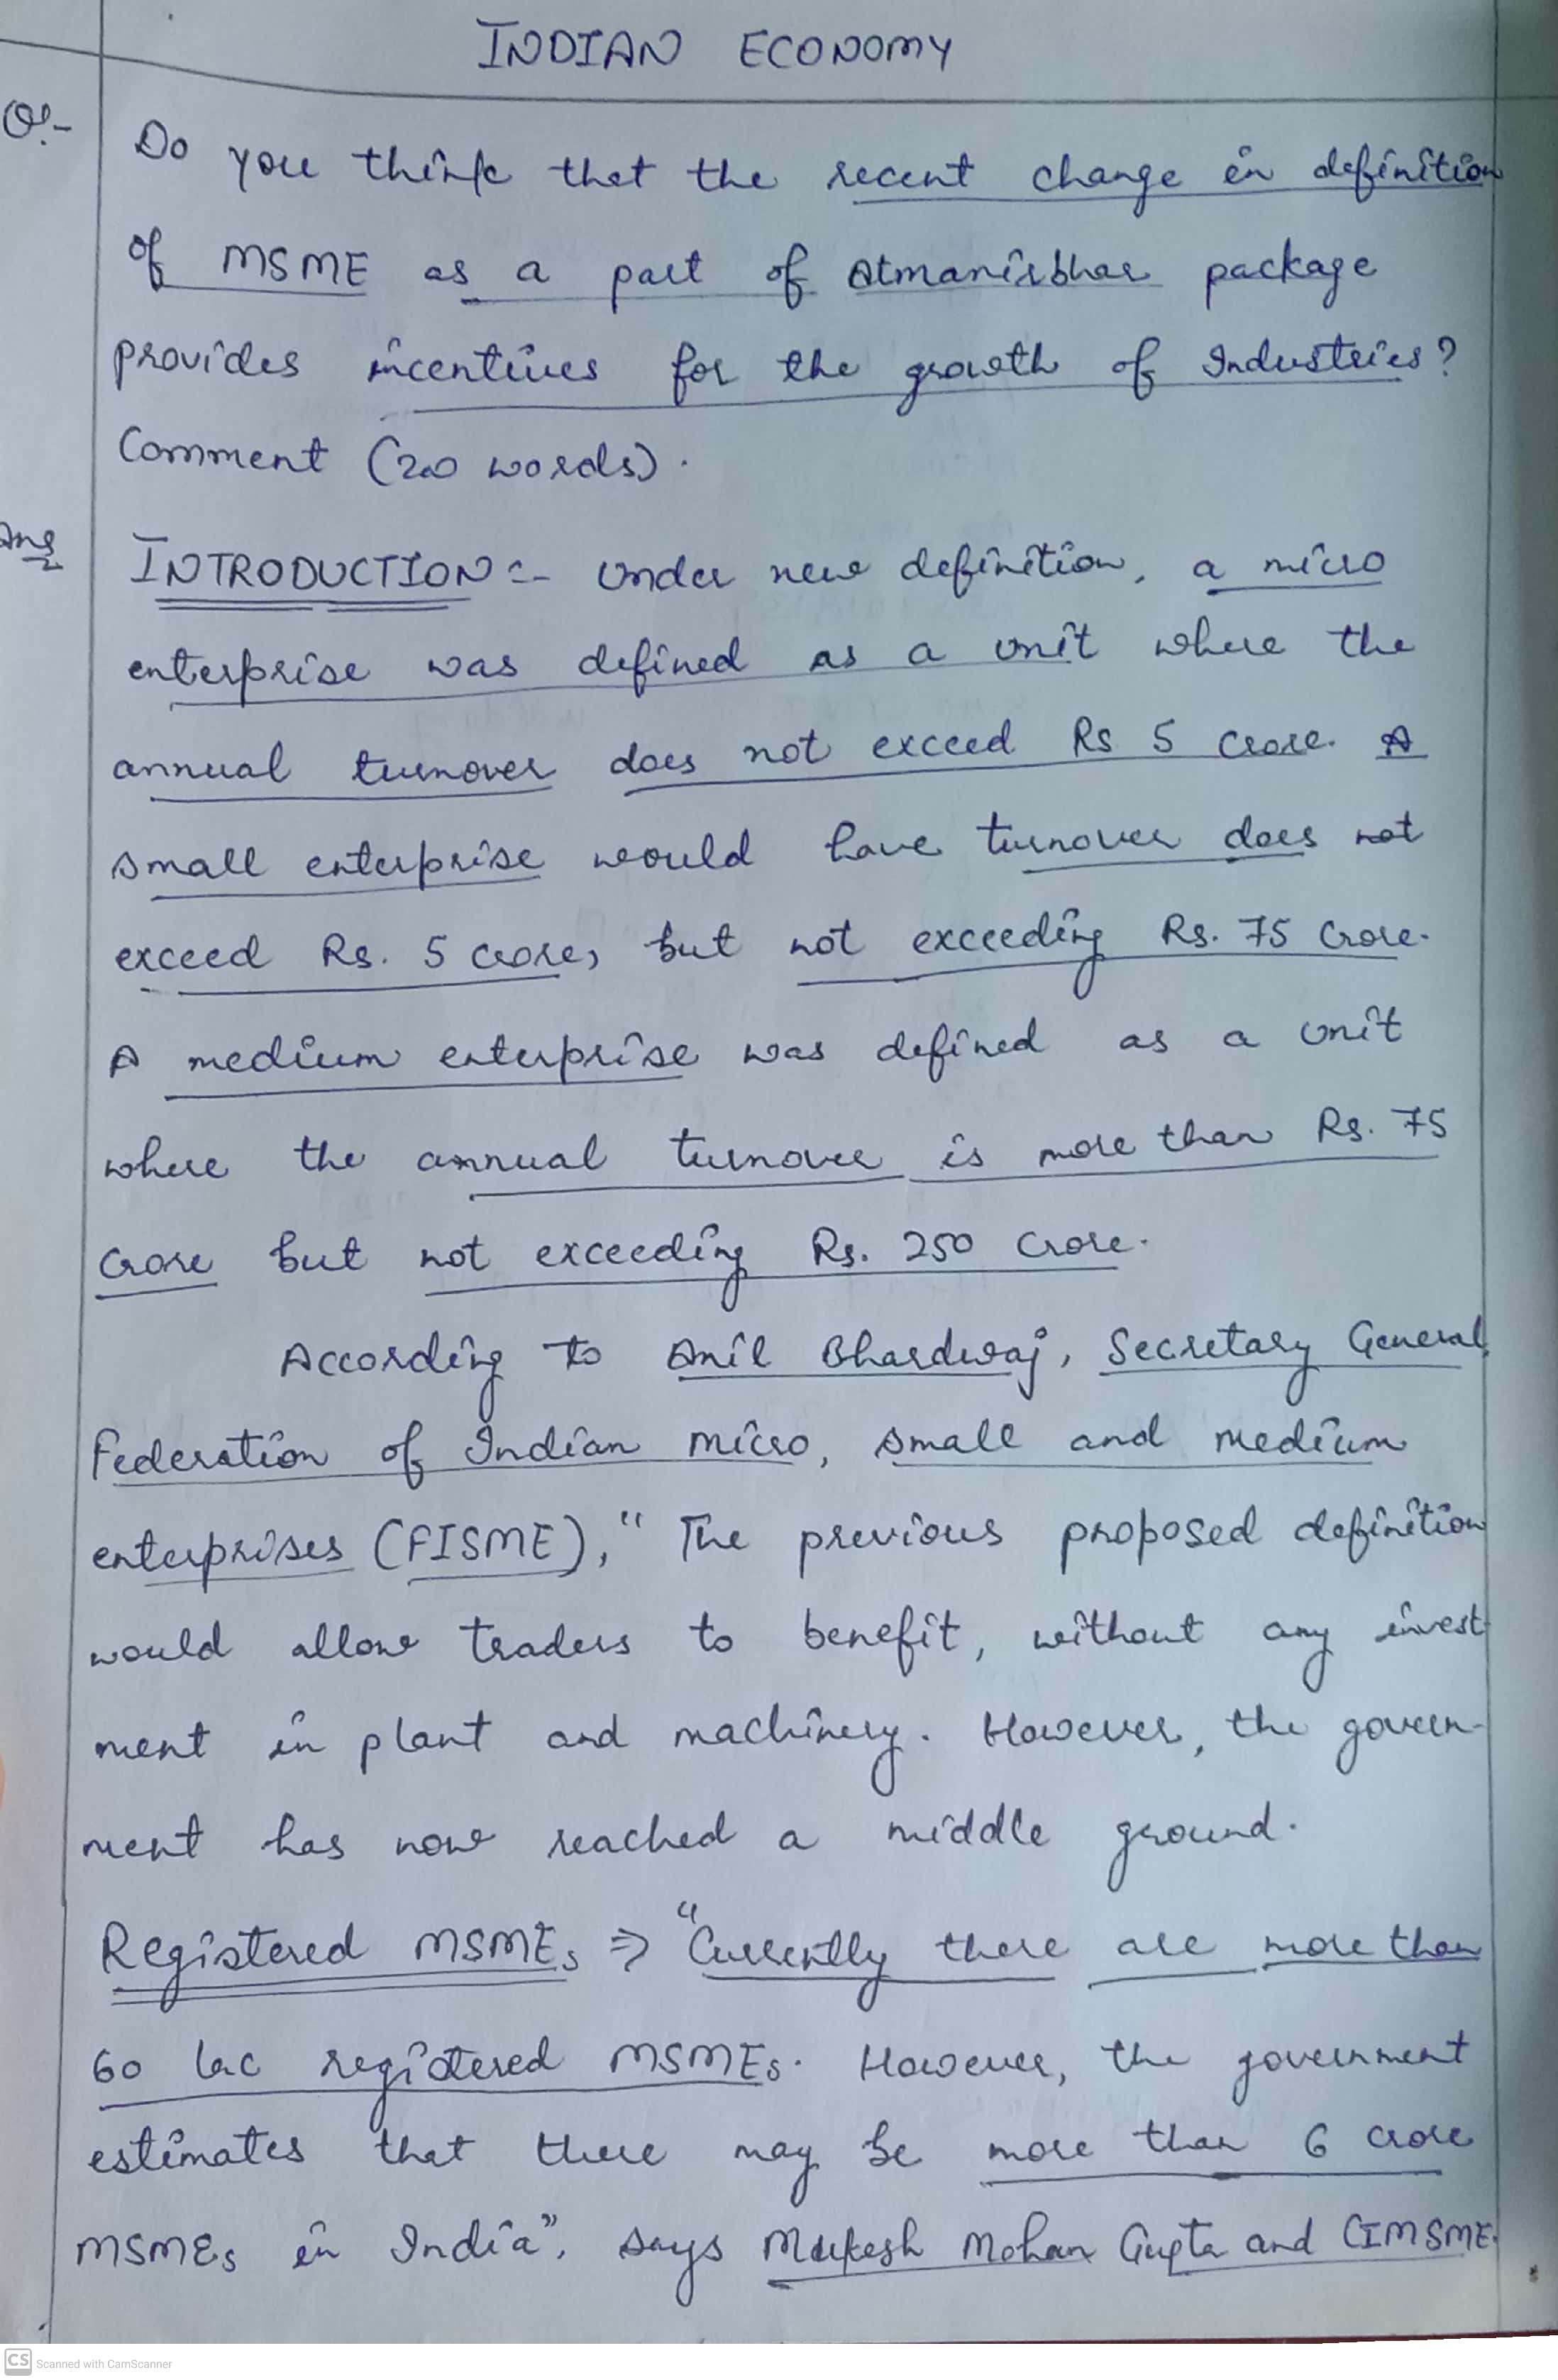 INDIAN ECONOMY
Q:- Do you think that the recent change in definition
of MSME as a part of Atmanirbhar package
provides incentives for the growth of Industries?
Comment (200 words).
Ans INTRODUCTION :- Under new definition, a micro
enterprise was defined as a unit where the
annual turnover does not exceed Rs 5 crore. A
small enterprise would have turnover does not
exceed Rs. 5 crore, but not exceeding Rs. 75 Crore.
A medium enterprise was defined as a unit
where the annual turnover is more than Rs. 75
Crore but not exceeding Rs. 250 Crore.
According to Anil Bhardwaj, Secretary General,
Federation of Indian micro, small and medium
enterprises (FISME), " The previous proposed definition
would allow traders to benefit, without any invest-
ment in plant and machinery. However, the govern-
ment has now reached a middle ground.
Registered MSMEs ⇒ "Currently there are more than
60 lac registered MSMEs. However, the government
estimates that there may be more than 6 crore
MSMEs in India", says Mukesh Mohan Gupta and CIMSME.
CS Scanned with CamScanner